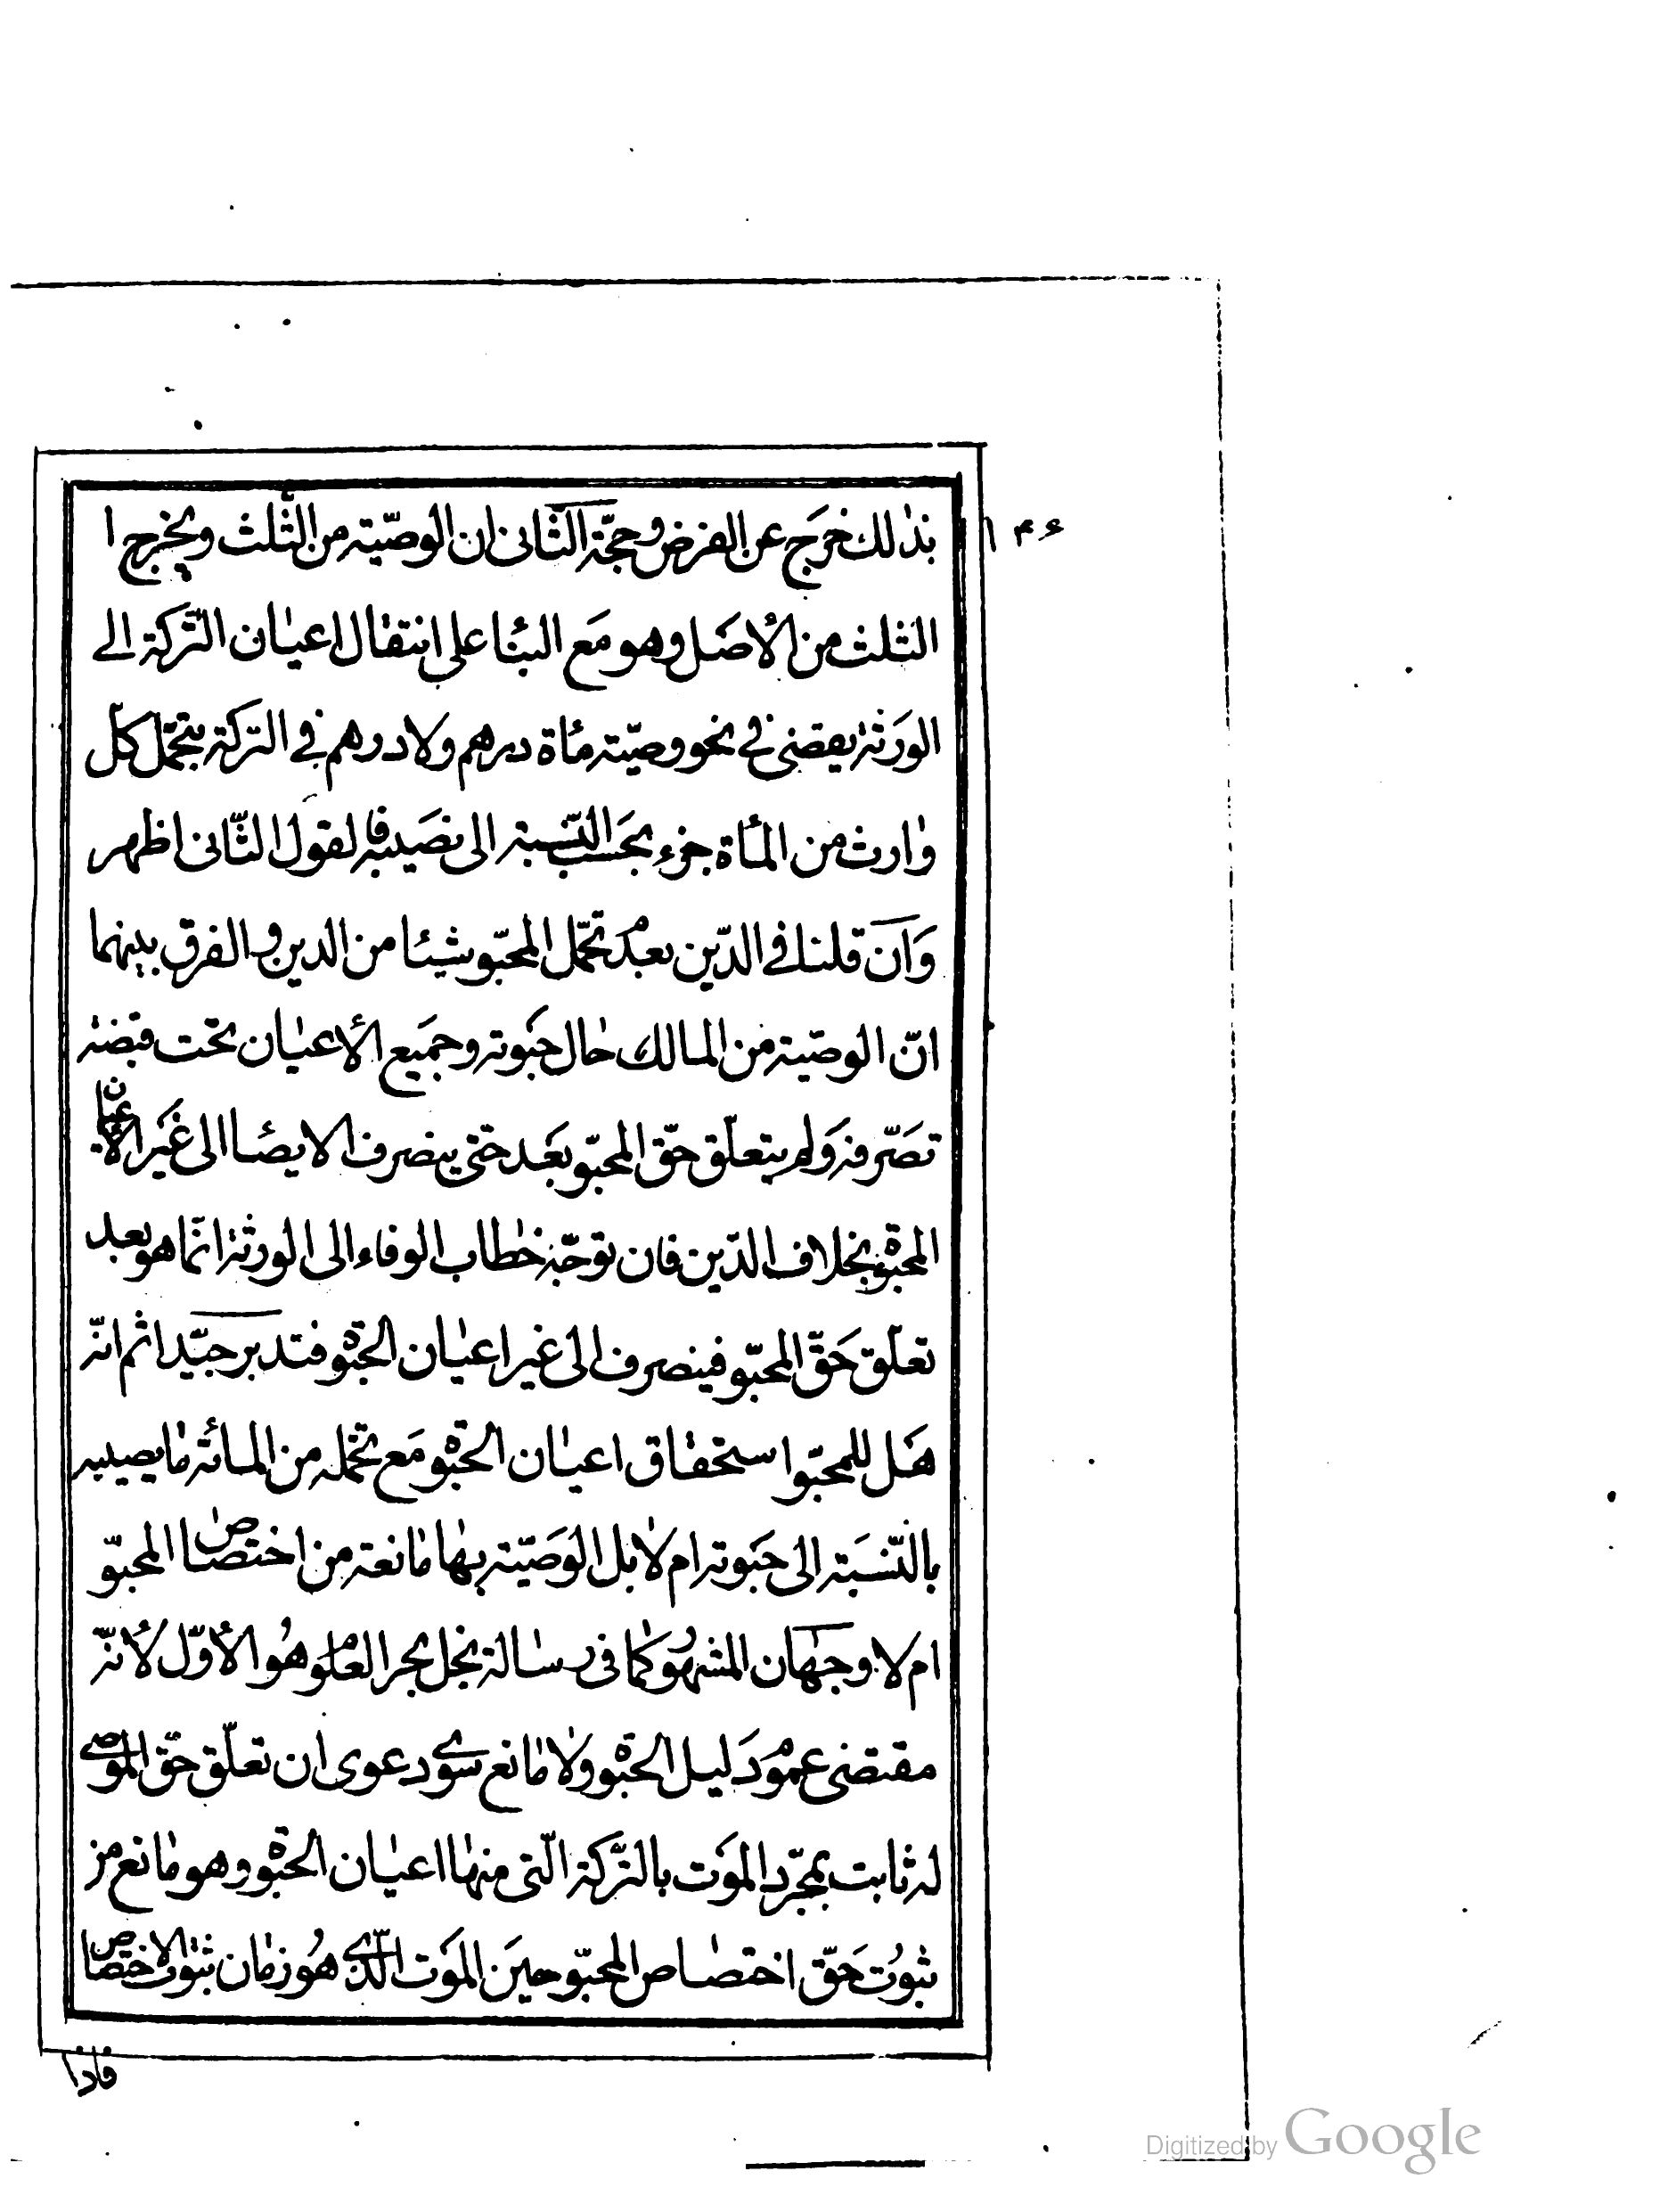 ۱۴۶
بذلك خرج عن الفرض وحجّة الثّانى ان الوصيّة من الثّلث ويخرج ا
الثلث من الأصل وهو مع البنٔا على انتقال اعيان التّركة الے
الورثة يقضى فى نحو وصيّته مأة درهم ولا درهم فى التركة بتحمّل كلّ
وارث من المأة جزء بحسب النّسبة الى نصيبه فالقول الثّانى اظهر
وان قلنا فى الدّين بعدم تحمّل المحبّو شيئا من الدين والفرق بينهما
انّ الوصيّة من المالك حال حيوته وجميع الأعيان تحت قبضته
تصرّفه ولم يتعلّق حقّ المحبّو بعد حتى ينصرف الايصا الى غير الأعيان
المحبوّة بخلاف الدّين فان توجّه خطاب الوفاء الى الورثة انّما هو بعد
تعلّق حقّ المحبّو فينصرف الى غير اعيان الحبوة فتدبر جيّدا ثم انّه
هل للمحبّو استحقاق اعيان الحبوة مع تحمّله من المائة ما يصيبه
بالنّسبة الى حبوته ام لا بل الوصيّة بها مانعة من اختصاص المحبّو
ام لا وجهان المشهور كما فى رسالة نجل بحر العلوم هو الأوّل لأنّه
مقتضى عموم دليل الحبوة ولا مانع سوے دعوى ان تعلّق حقّ الموصے
له ثابت بمجرّد الموت بالتّركة الّتى منها اعيان الحبوة وهو مانع من
ثبوت حقّ اختصاص المحبّو حين الموت الّذے هو زمان ثبوت الاختصاص
فاذا
Digitized by Google